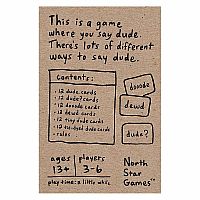 This is a game
where you say dude.
There's lots of different
ways to say dude.
Contents:
• 12 dude cards
• 12 dude? cards
• 12 dooode cards
• 12 dewd cards
• 12 tiny dude cards
• rules
dooode
dewd
dude?
ages
13+
players
3-6
play time: a little while
North
Star
Games™